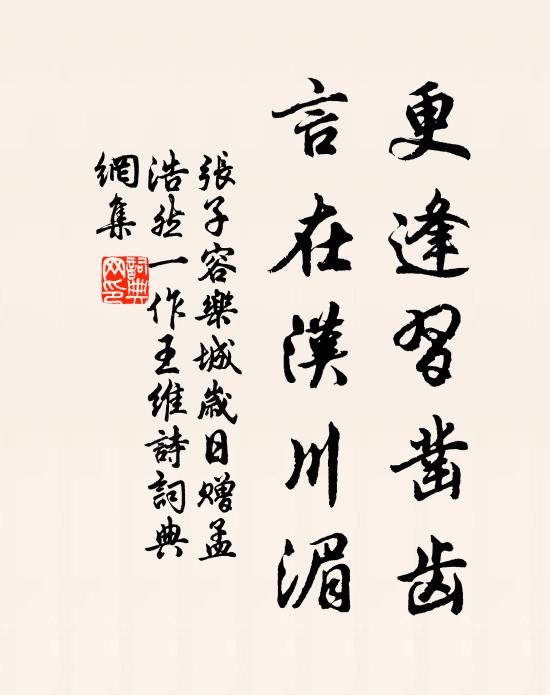 更逢習鑿齿
言在漢川湄
張子容樂城歲日赠孟
浩然一作王維詩詞典
網集
詞典网印